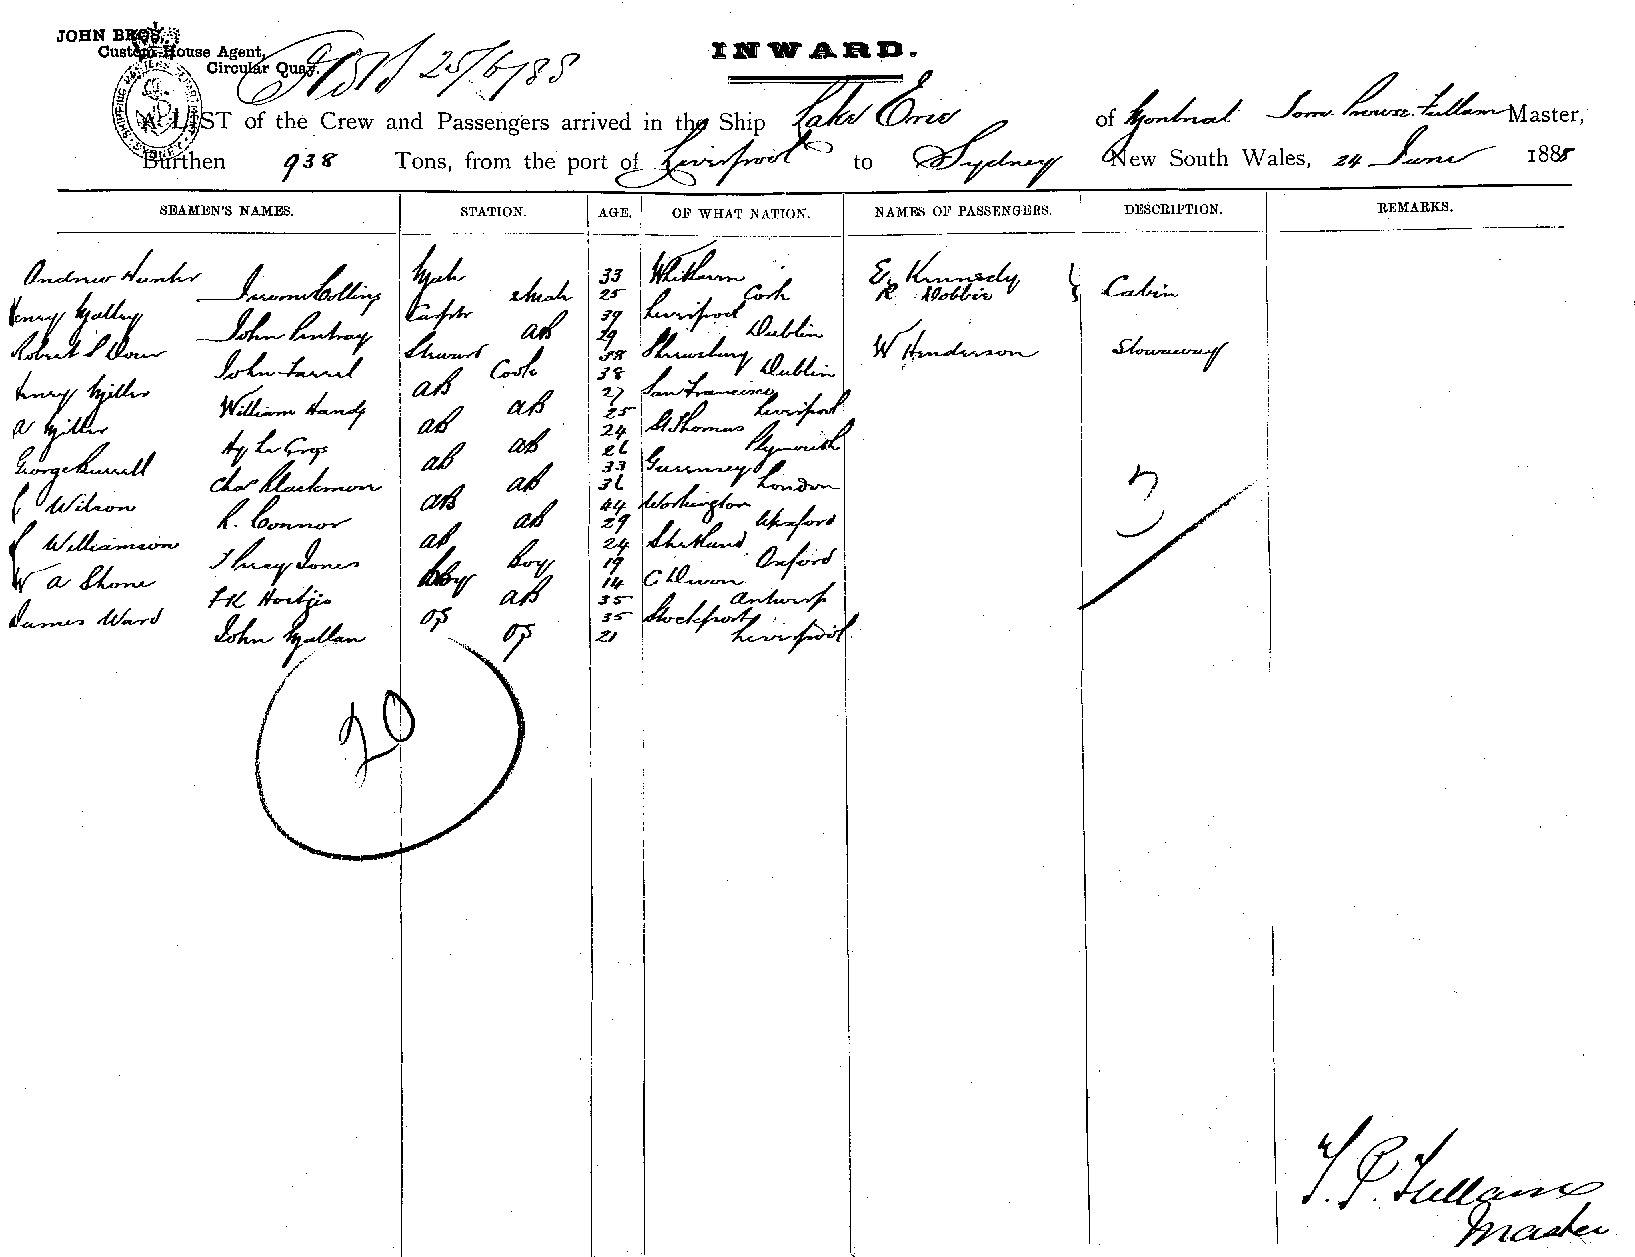 JOHN BROS.
Custom House Agent,
Circular Quay.
25/6/85
INWARD.
A LIST of the Crew and Passengers arrived in the Ship Lake Erie of Montreal Master,
Burthen 938 Tons, from the port of Liverpool to Sydney New South Wales, 24 June 1885
SEAMEN'S NAMES. STATION. AGE. OF WHAT NATION. NAMES OF PASSENGERS. DESCRIPTION. REMARKS.
Andrew Hunter Mate 33 Whithorn E Kennedy
Jerome Collins 2 Mate 25 Cork R Dobbie Cabin
Henry Malley Carptr 39 Liverpool
John AB 29 Dublin
Robert S Dow Steward 38 Shrewsbury W Henderson Stowaway
John Farrel Cook 38 Dublin
Henry Miller AB 27 San Francisco
William Handy AB 25 Liverpool
A Miller AB 24 St Thomas
Hy Le Gros AB 26 Plymouth
George AB 33 Guernsey
Chas Blackmon AB 36 London
J Wilson AB 44 Workington
R. Connor AB 29 Wexford
J Williamson AB 24 Shetland
Jones Boy 19 Oxford
W A Shone Boy 14 C Devon
AB 35 Antwerp
James Ward OS 35 Stockport
John Mallan OS 21 Liverpool
3
20
T. P. Fullam
Master